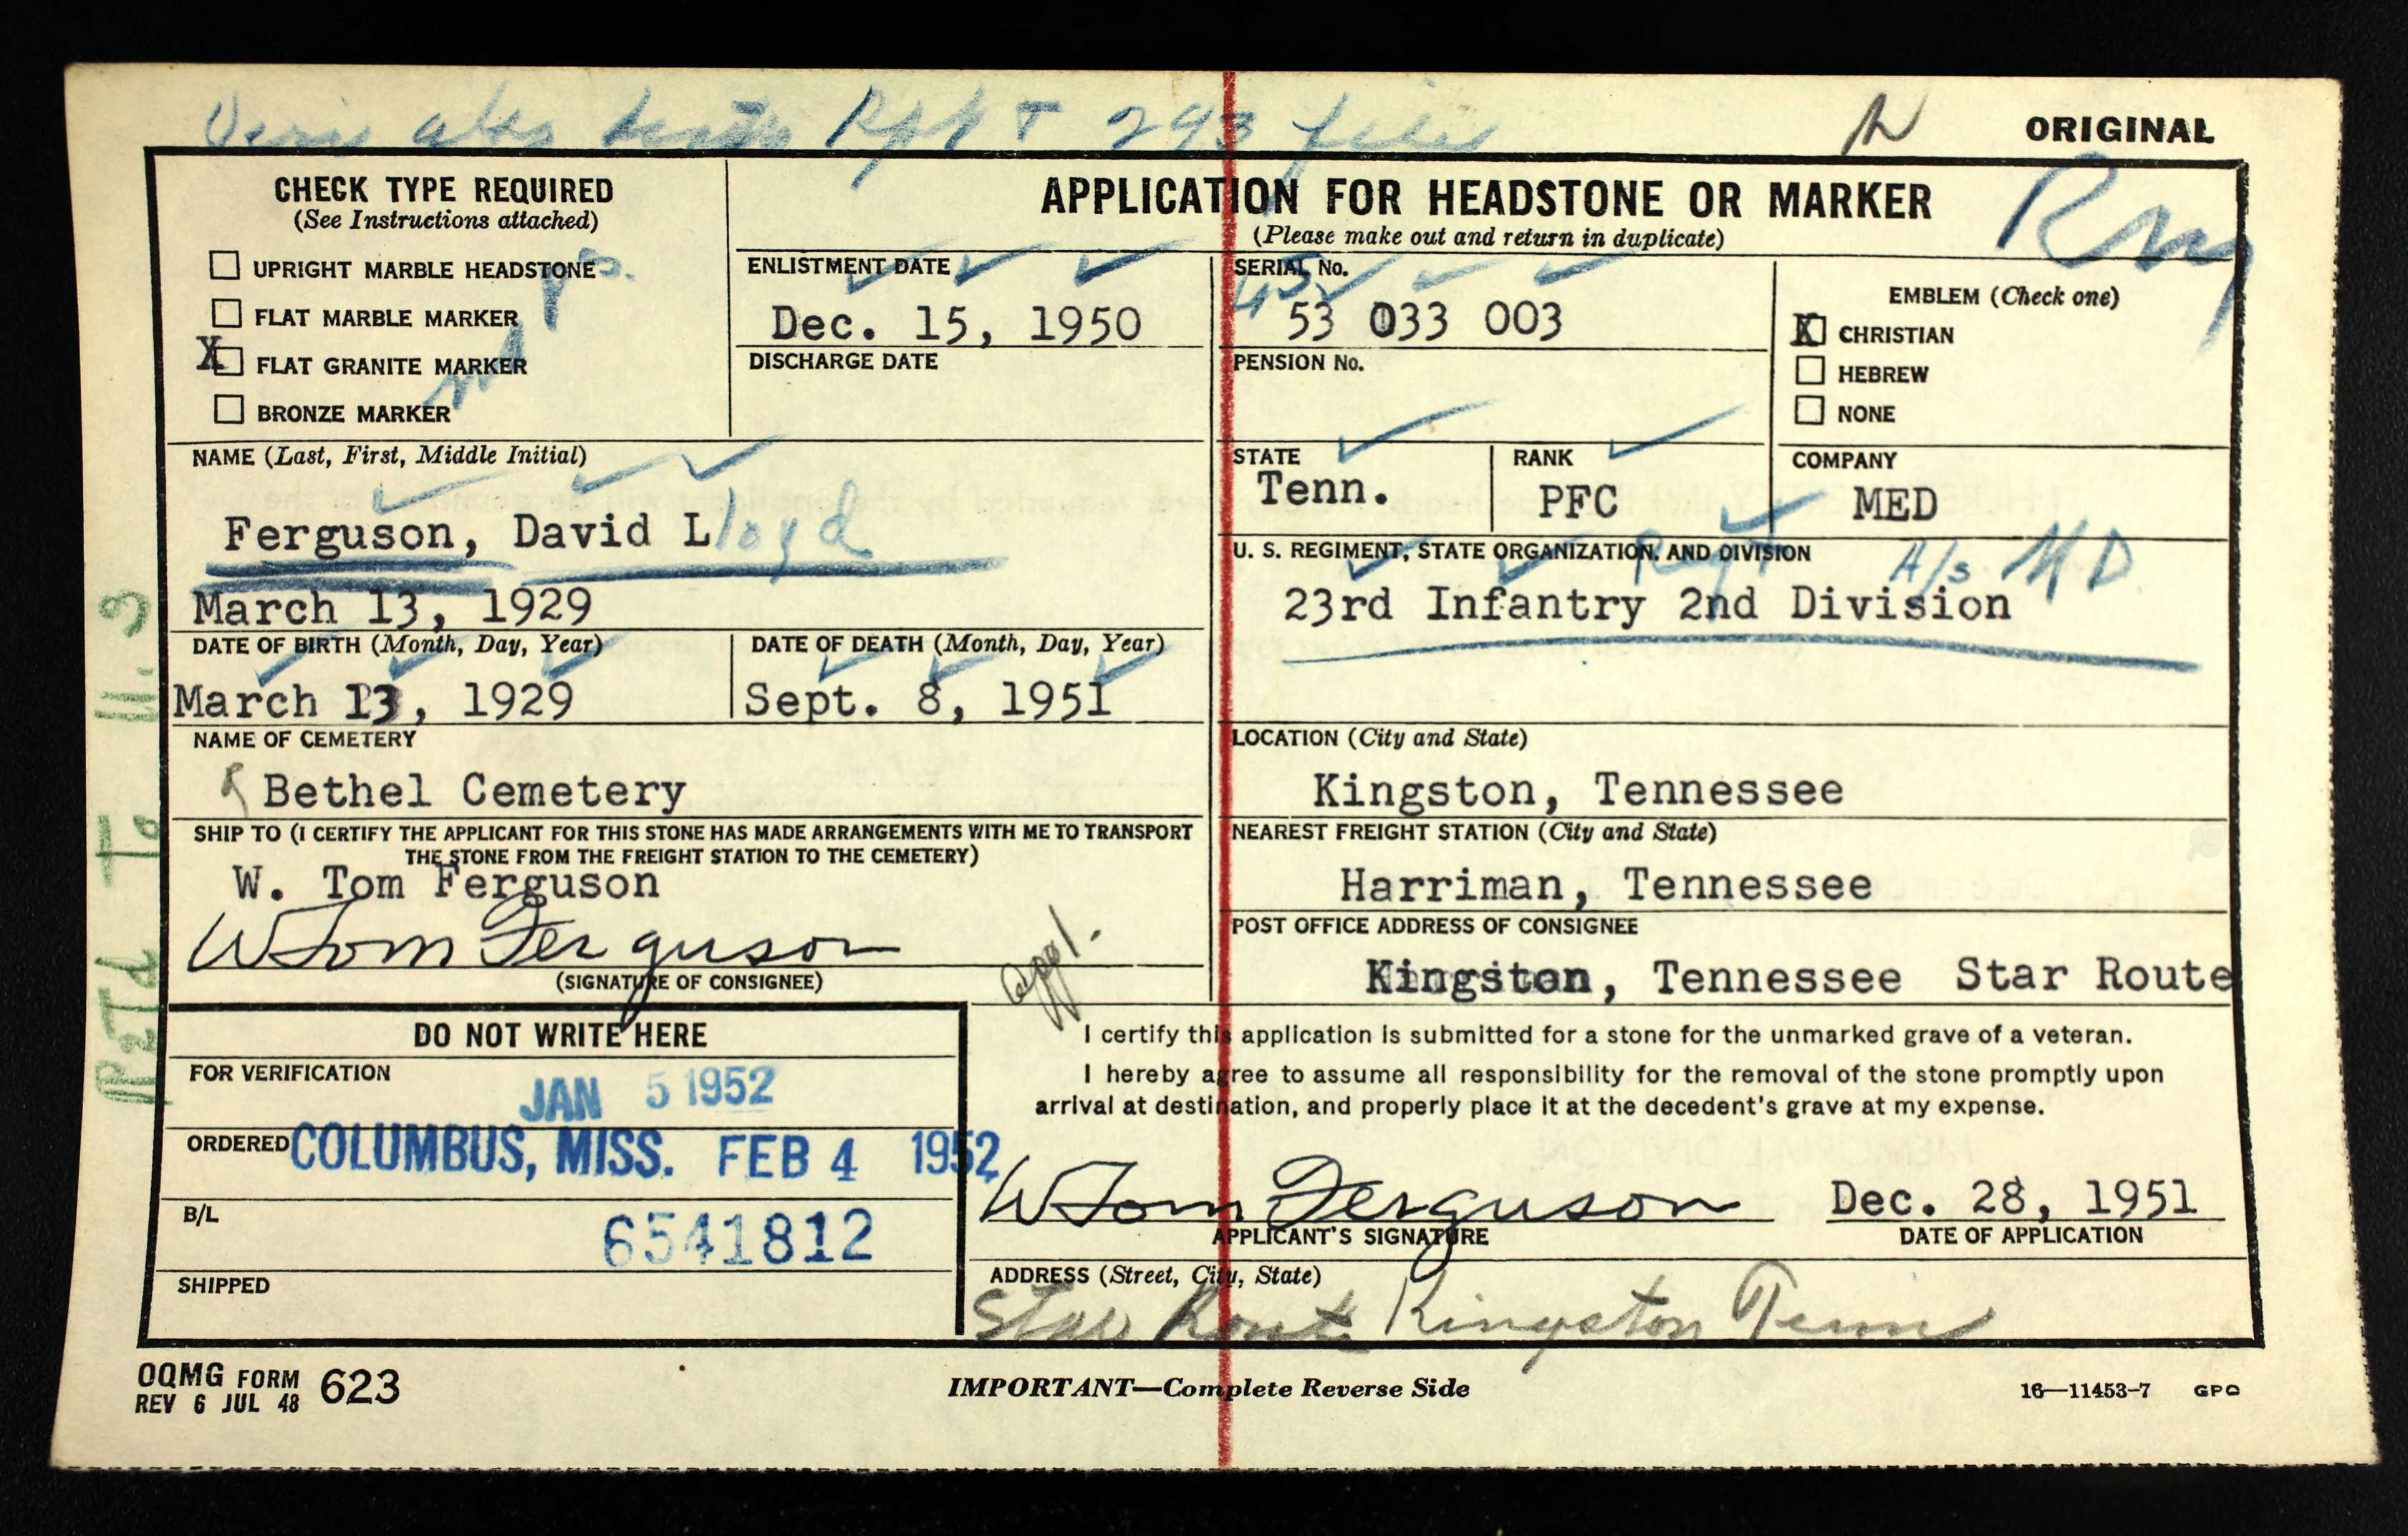 Rpt + 293 file
ORIGINAL
CHECK TYPE REQUIRED
(See Instructions attached)
UPRIGHT MARBLE HEADSTONE
FLAT MARBLE MARKER
X FLAT GRANITE MARKER
BRONZE MARKER
APPLICATION FOR HEADSTONE OR MARKER
(Please make out and return in duplicate)
ENLISTMENT DATE
Dec. 15, 1950
DISCHARGE DATE
SERIAL No.
45
53 033 003
PENSION No.
EMBLEM (Check one)
X CHRISTIAN
HEBREW
NONE
NAME (Last, First, Middle Initial)
Ferguson, David Lloyd
March 13, 1929
STATE
Tenn.
RANK
PFC
COMPANY
MED
U. S. REGIMENT, STATE ORGANIZATION, AND DIVISION
Regt A/s MD
23rd Infantry 2nd Division
DATE OF BIRTH (Month, Day, Year)
March 13, 1929
DATE OF DEATH (Month, Day, Year)
Sept. 8, 1951
NAME OF CEMETERY
Bethel Cemetery
LOCATION (City and State)
Kingston, Tennessee
SHIP TO (I CERTIFY THE APPLICANT FOR THIS STONE HAS MADE ARRANGEMENTS WITH ME TO TRANSPORT
THE STONE FROM THE FREIGHT STATION TO THE CEMETERY)
W. Tom Ferguson
W Tom Ferguson
(SIGNATURE OF CONSIGNEE)
NEAREST FREIGHT STATION (City and State)
Harriman, Tennessee
POST OFFICE ADDRESS OF CONSIGNEE
Kingston, Tennessee Star Route
Appl.
DO NOT WRITE HERE
FOR VERIFICATION
JAN 5 1952
ORDERED
COLUMBUS, MISS. FEB 4 1952
B/L
6541812
SHIPPED
I certify this application is submitted for a stone for the unmarked grave of a veteran.
I hereby agree to assume all responsibility for the removal of the stone promptly upon
arrival at destination, and properly place it at the decedent's grave at my expense.
W Tom Ferguson
APPLICANT'S SIGNATURE
Dec. 28, 1951
DATE OF APPLICATION
ADDRESS (Street, City, State)
Star Route Kingston Tenn
OQMG FORM 623
REV 6 JUL 48
IMPORTANT—Complete Reverse Side
16—11453-7 GPO
Retd To U.S